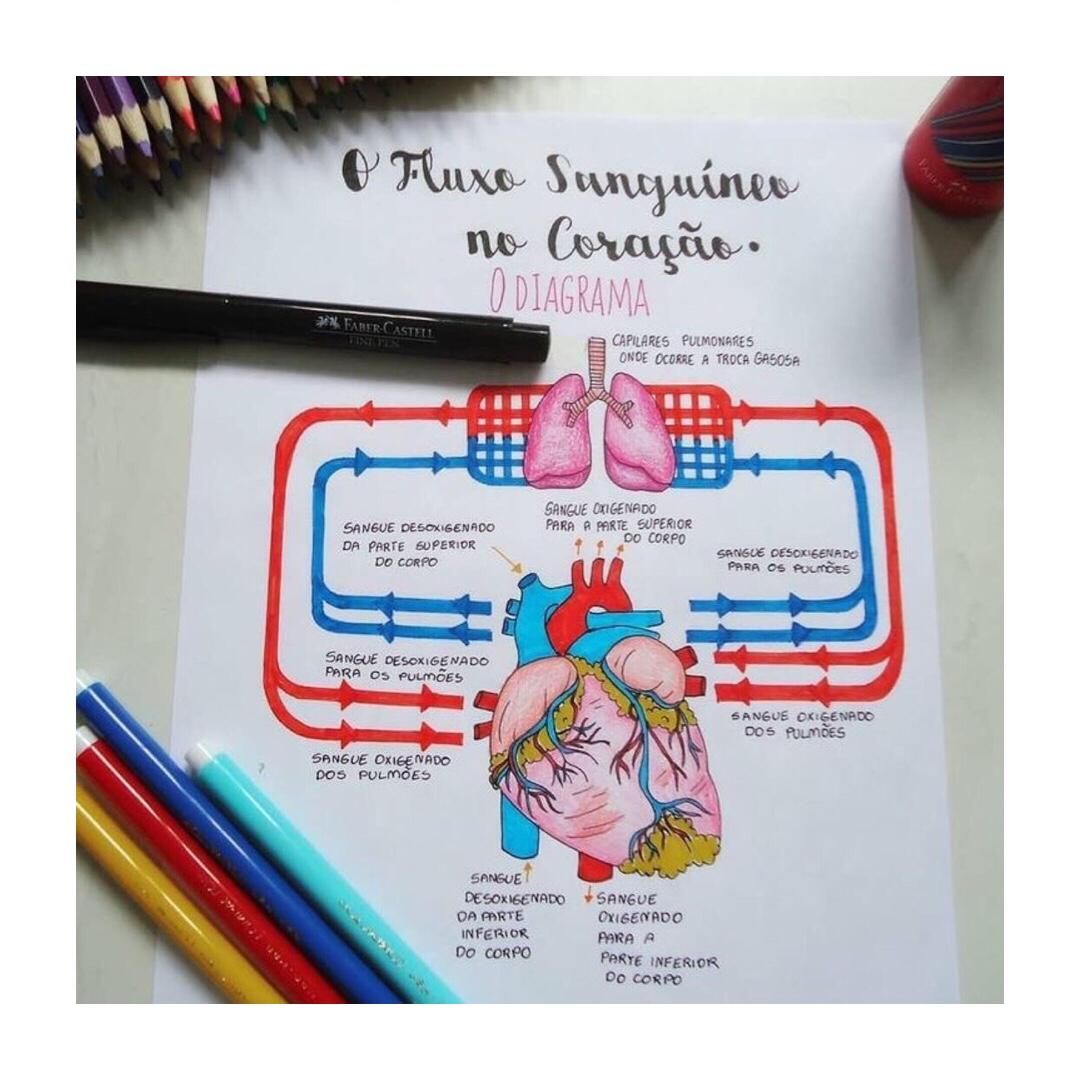 O Fluxo Sanguíneo
no Coração.
O DIAGRAMA
FABER-CASTELL
FINE PEN
FABER-CASTELL
CAPILARES PULMONARES
ONDE OCORRE A TROCA GASOSA
SANGUE OXIGENADO
PARA A PARTE SUPERIOR
DO CORPO
SANGUE DESOXIGENADO
DA PARTE SUPERIOR
DO CORPO
SANGUE DESOXIGENADO
PARA OS PULMÕES
SANGUE DESOXIGENADO
PARA OS PULMÕES
SANGUE OXIGENADO
DOS PULMÕES
SANGUE OXIGENADO
DOS PULMÕES
SANGUE
DESOXIGENADO
DA PARTE
INFERIOR
DO CORPO
SANGUE
OXIGENADO
PARA A
PARTE INFERIOR
DO CORPO